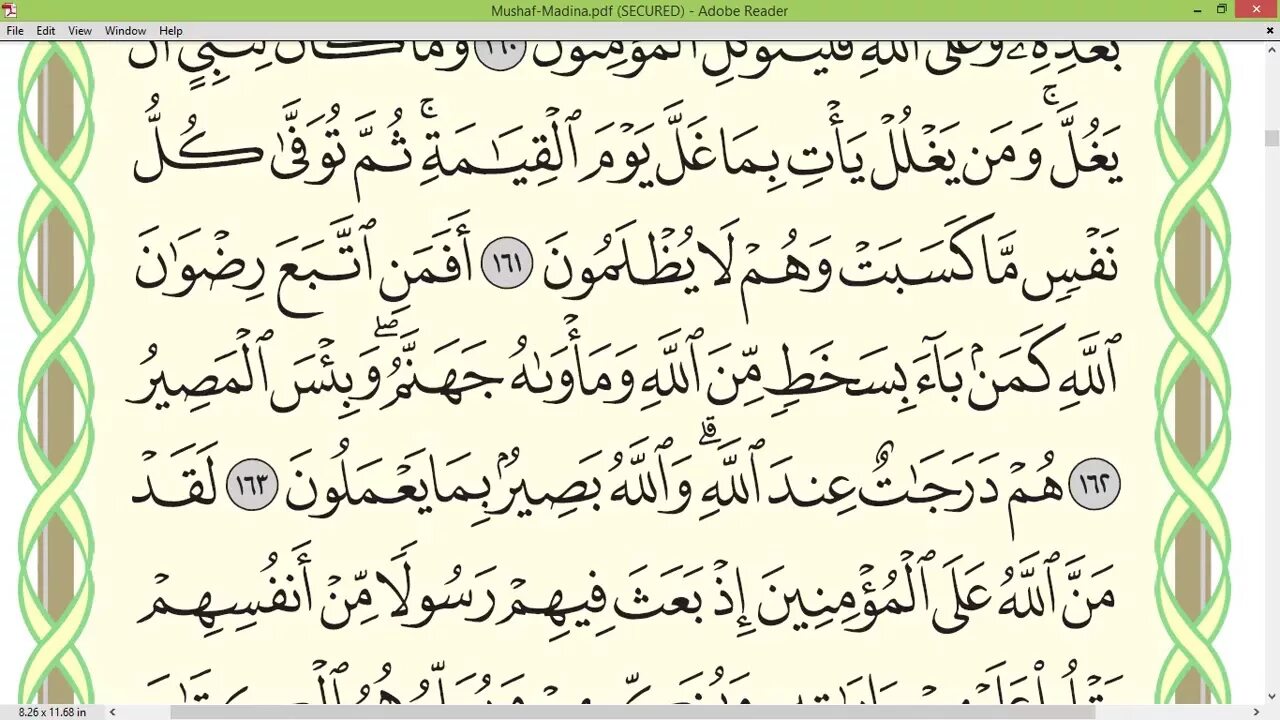 Mushaf-Madina.pdf (SECURED) - Adobe Reader
File Edit View Window Help
بَعْدِهِۦ وَعَلَى ٱللَّهِ فَلْيَتَوَكَّلِ ٱلْمُؤْمِنُونَ ١٦٠ وَمَا كَانَ لِنَبِىٍّ أَن
يَغُلَّ ۚ وَمَن يَغْلُلْ يَأْتِ بِمَا غَلَّ يَوْمَ ٱلْقِيَـٰمَةِ ۚ ثُمَّ تُوَفَّىٰ كُلُّ
نَفْسٍ مَّا كَسَبَتْ وَهُمْ لَا يُظْلَمُونَ ١٦١ أَفَمَنِ ٱتَّبَعَ رِضْوَٰنَ
ٱللَّهِ كَمَنۢ بَآءَ بِسَخَطٍ مِّنَ ٱللَّهِ وَمَأْوَىٰهُ جَهَنَّمُ ۖ وَبِئْسَ ٱلْمَصِيرُ
١٦٢ هُمْ دَرَجَـٰتٌ عِندَ ٱللَّهِ ۗ وَٱللَّهُ بَصِيرٌۢ بِمَا يَعْمَلُونَ ١٦٣ لَقَدْ
مَنَّ ٱللَّهُ عَلَى ٱلْمُؤْمِنِينَ إِذْ بَعَثَ فِيهِمْ رَسُولًا مِّنْ أَنفُسِهِمْ
8.26 x 11.68 in